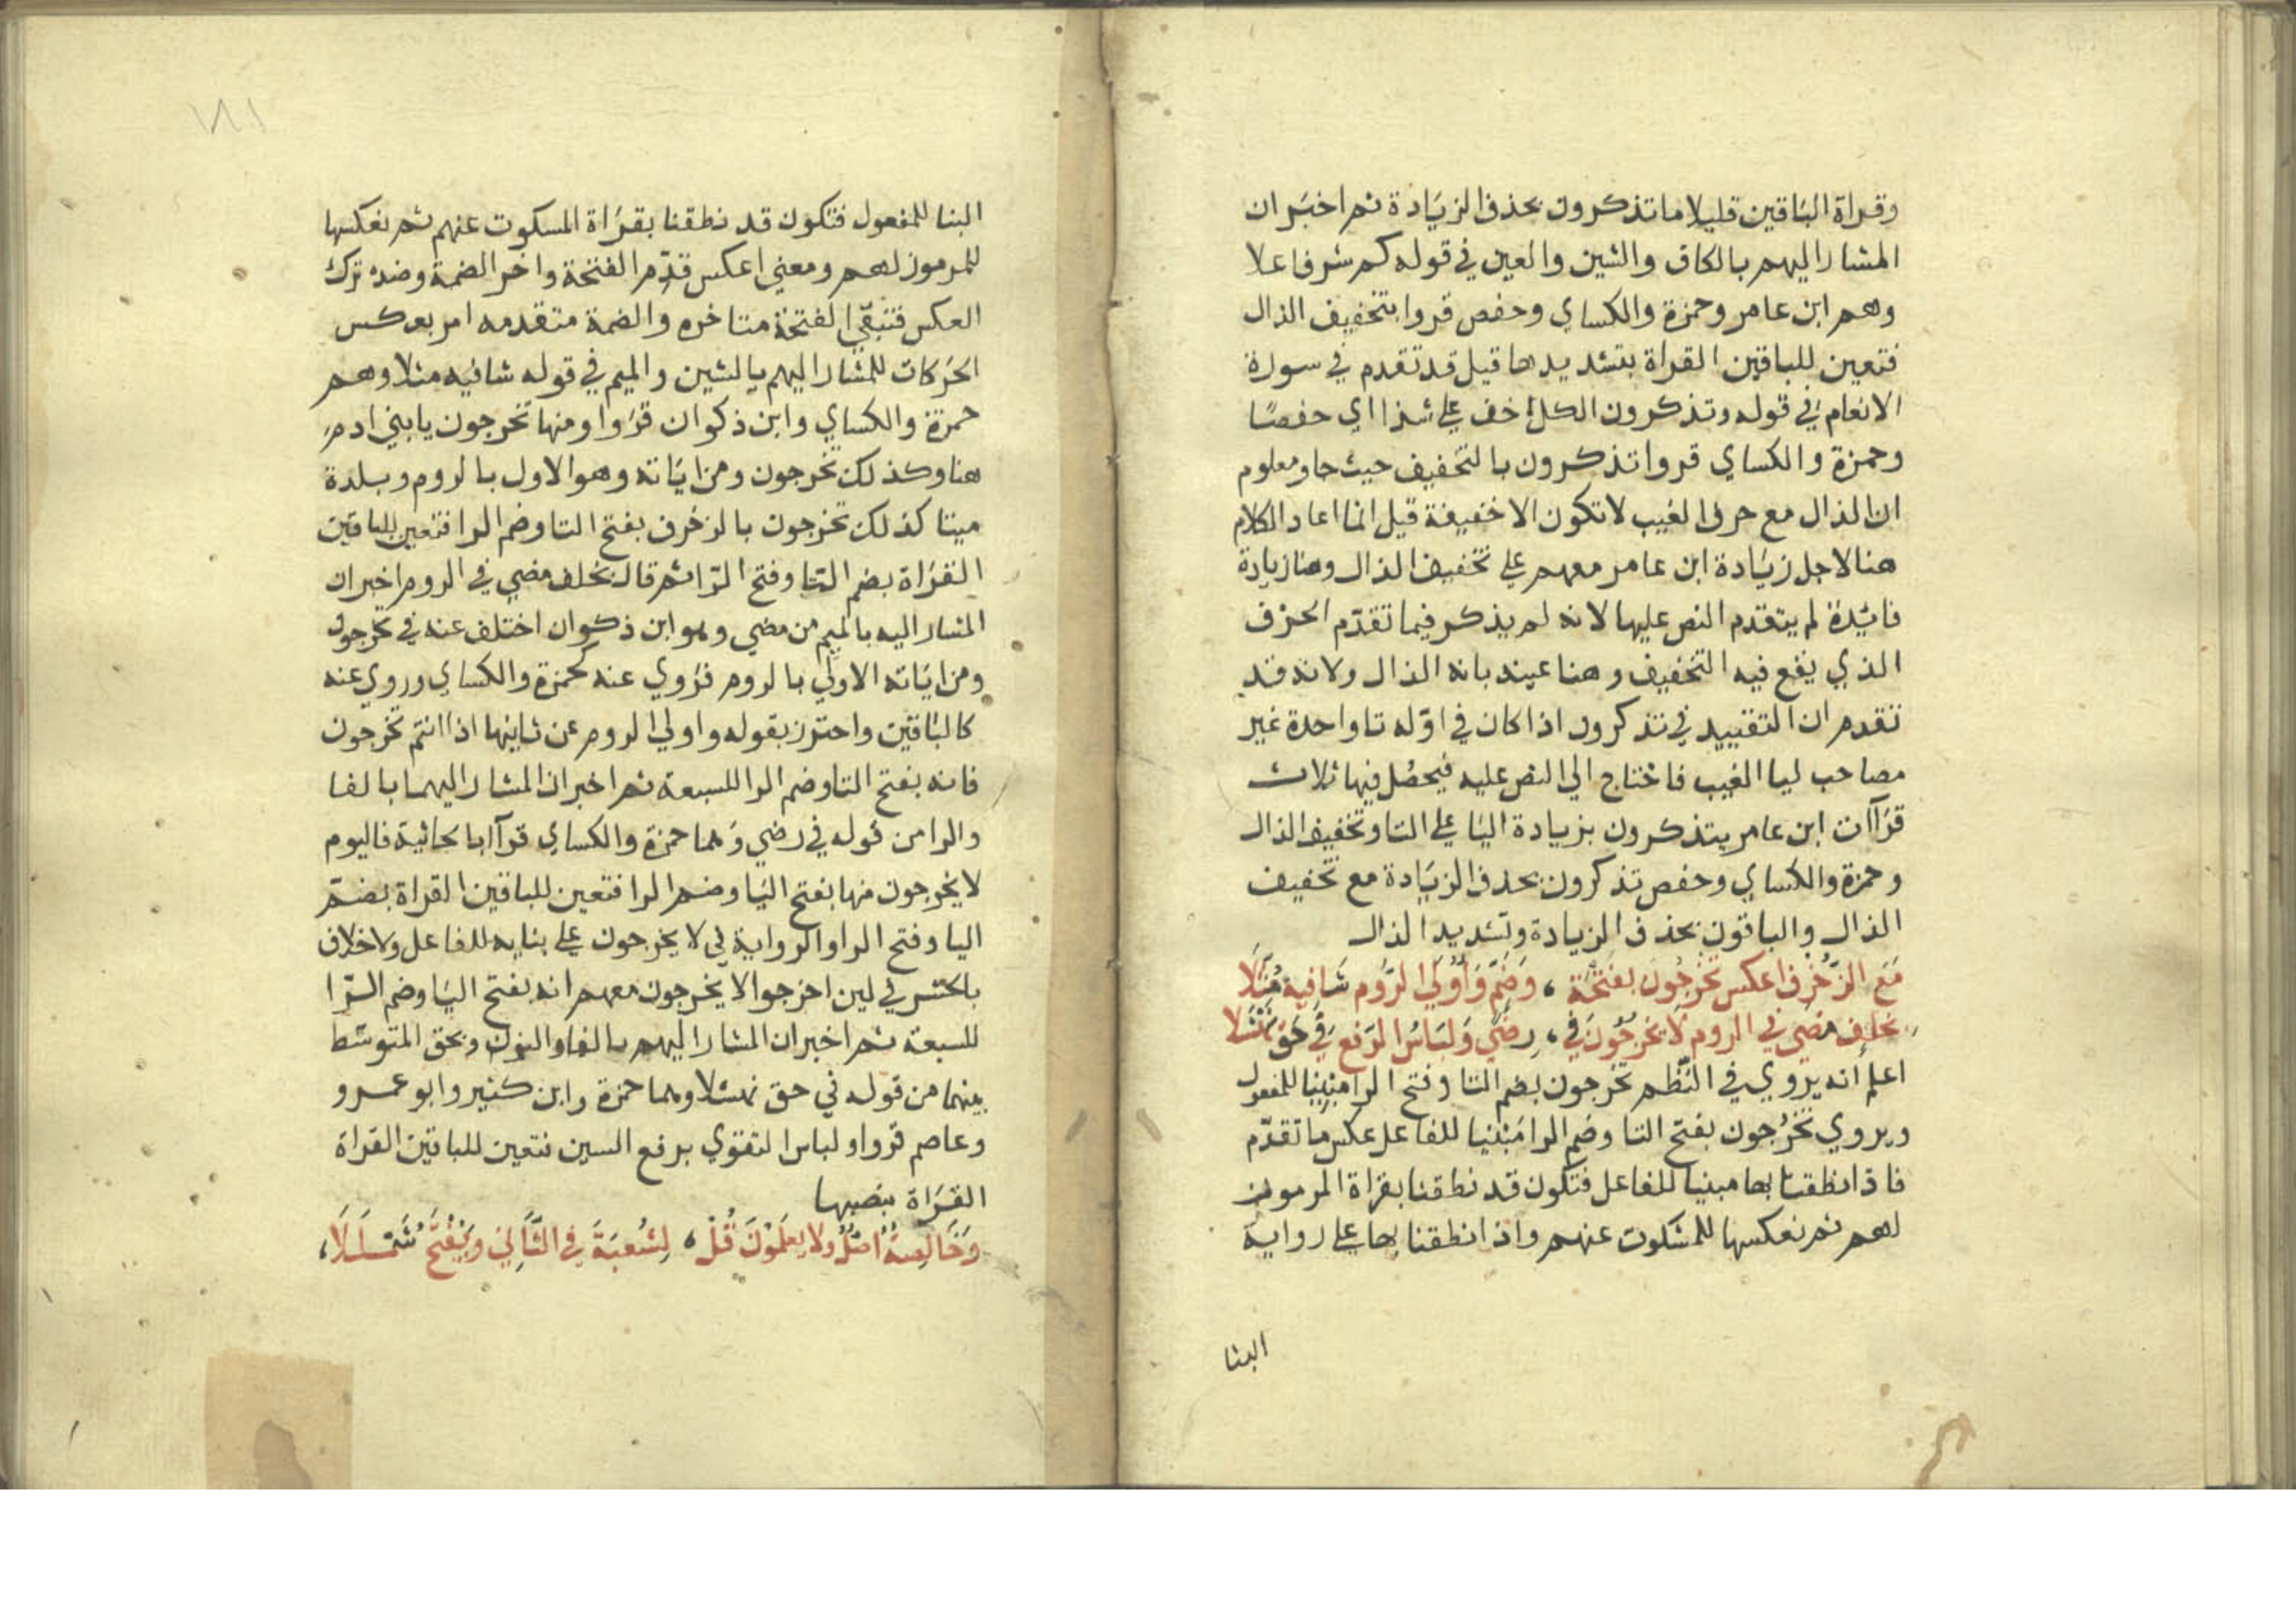 وقراة الباقين قليلا ما تذكرون بحذف الزيادة ثم اخبر ان
المشار اليهم بالكاف والشين والعين في قوله كم شرفا علا
وهم ابن عامر وحمزة والكساي وحفص قروا بتخفيف الذال
فتعين للباقين القراة بتشديدها قيل قد تقدم في سورة
الانعام في قوله وتذكرون الكل خف على شذا اي حفصا
وحمزة والكساي قروا تذكرون بالتخفيف حيث جا ومعلوم
ان الذال مع حرف الغيب لا تكون الا خفيفة قيل انما اعاد الكلام
هنا لاجل زيادة ابن عامر معهم على تخفيف الذال وهنا زيادة
فائدة لم يتقدم النص عليها لانه لم يذكر فيما تقدم الحرف
الذي يقع فيه التخفيف وهنا عينه بانه الذال ولانه قد
تقدم ان التقييد في تذكرون اذا كان في اوله تا واحدة غير
مصاحب ليا الغيب فاحتاج الى النص عليه فيحصل فيها ثلاث
قراآت ابن عامر يتذكرون بزيادة اليا على التا وتخفيف الذال
وحمزة والكساي وحفص تذكرون بحذف الزيادة مع تخفيف
الذال والباقون بحذف الزيادة وتشديد الذال
مَعَ الزُّخْرُفِ اعكس تخْرجُونَ بفَتْحَة ، وَضَمّ وَأُولَى الرُّوم شَافِيه مُثِّلَا
بخلف مضى في الروم لا يخرجُونَ في ، رِضًى وَلبَاسُ الرفع في حَقّ نَهْشَلا
اعلم انه يروي في النظم تخرجون بضم التا وفتح الرا مبنيا للمفعول
ويروي تخرُجون بفتح التا وضم الرا مبنيا للفاعل عكس ما تقدم
فاذا نطقنا بها مبنيا للفاعل فتكون قد نطقنا بقراة المرموز
لهم ثم نعكسها للمسكوت عنهم واذا نطقنا بها على رواية
البنا
١٨١
البنا للمفعول فتكون قد نطقنا بقراة المسكوت عنهم ثم نعكسها
للمرموز لهم ومعني اعكس قدم الفتحة واخر الضمة وضده ترك
العكس فتبقي الفتحة متاخره والضمة متقدمه امر بعكس
الحركات للمشار اليهم بالشين والميم في قوله شافيه مثلا وهم
حمزة والكساي وابن ذكوان قروا ومنها تخرجون يا بني ادم
هنا وكذلك تخرجون ومن اياته وهو الاول بالروم وبلدة
ميتا كذلك تخرجون بالزخرف بفتح التا وضم الرا فتعين للباقين
القراة بضم التا وفتح الرا ثم قال بخلف مضي في الروم اخبر ان
المشار اليه بالميم من مضي وهو ابن ذكوان اختلف عنه في تخرجون
ومن اياته الاولي بالروم فروي عنه كحمزة والكساي وروي عنه
كالباقين واحترز بقوله واولي الروم عن ثانيها اذا انتم تخرجون
فانه بفتح التا وضم الرا للسبعة ثم اخبر ان المشار اليهما بالفا
والرا من قوله في رضي وهما حمزة والكساي قرآ بالجاثية فاليوم
لا يخرجون منها بفتح اليا وضم الرا فتعين للباقين القراة بضم
اليا وفتح الرا والرواية في لا يخرجون على بنايه للفاعل ولا خلاف
بالحشر في لين اخرجوا لا يخرجون معهم انه بفتح اليا وضم الرا
للسبعة ثم اخبر ان المشار اليهم بالفا والنون وبحق المتوسط
بينهما من قوله في حق نهشلا وهما حمزة وابن كثير وابو عمرو
وعاصم قروا ولباس التقوي برفع السين فتعين للباقين القراة
القراة بنصبها
وَخَالِصَةٌ اصْلٌ ولا يعلمُونَ قُلْ ، لِشُعبَةَ في الثَّانِي وَيُفْتَحُ شَمْلَلَا ،